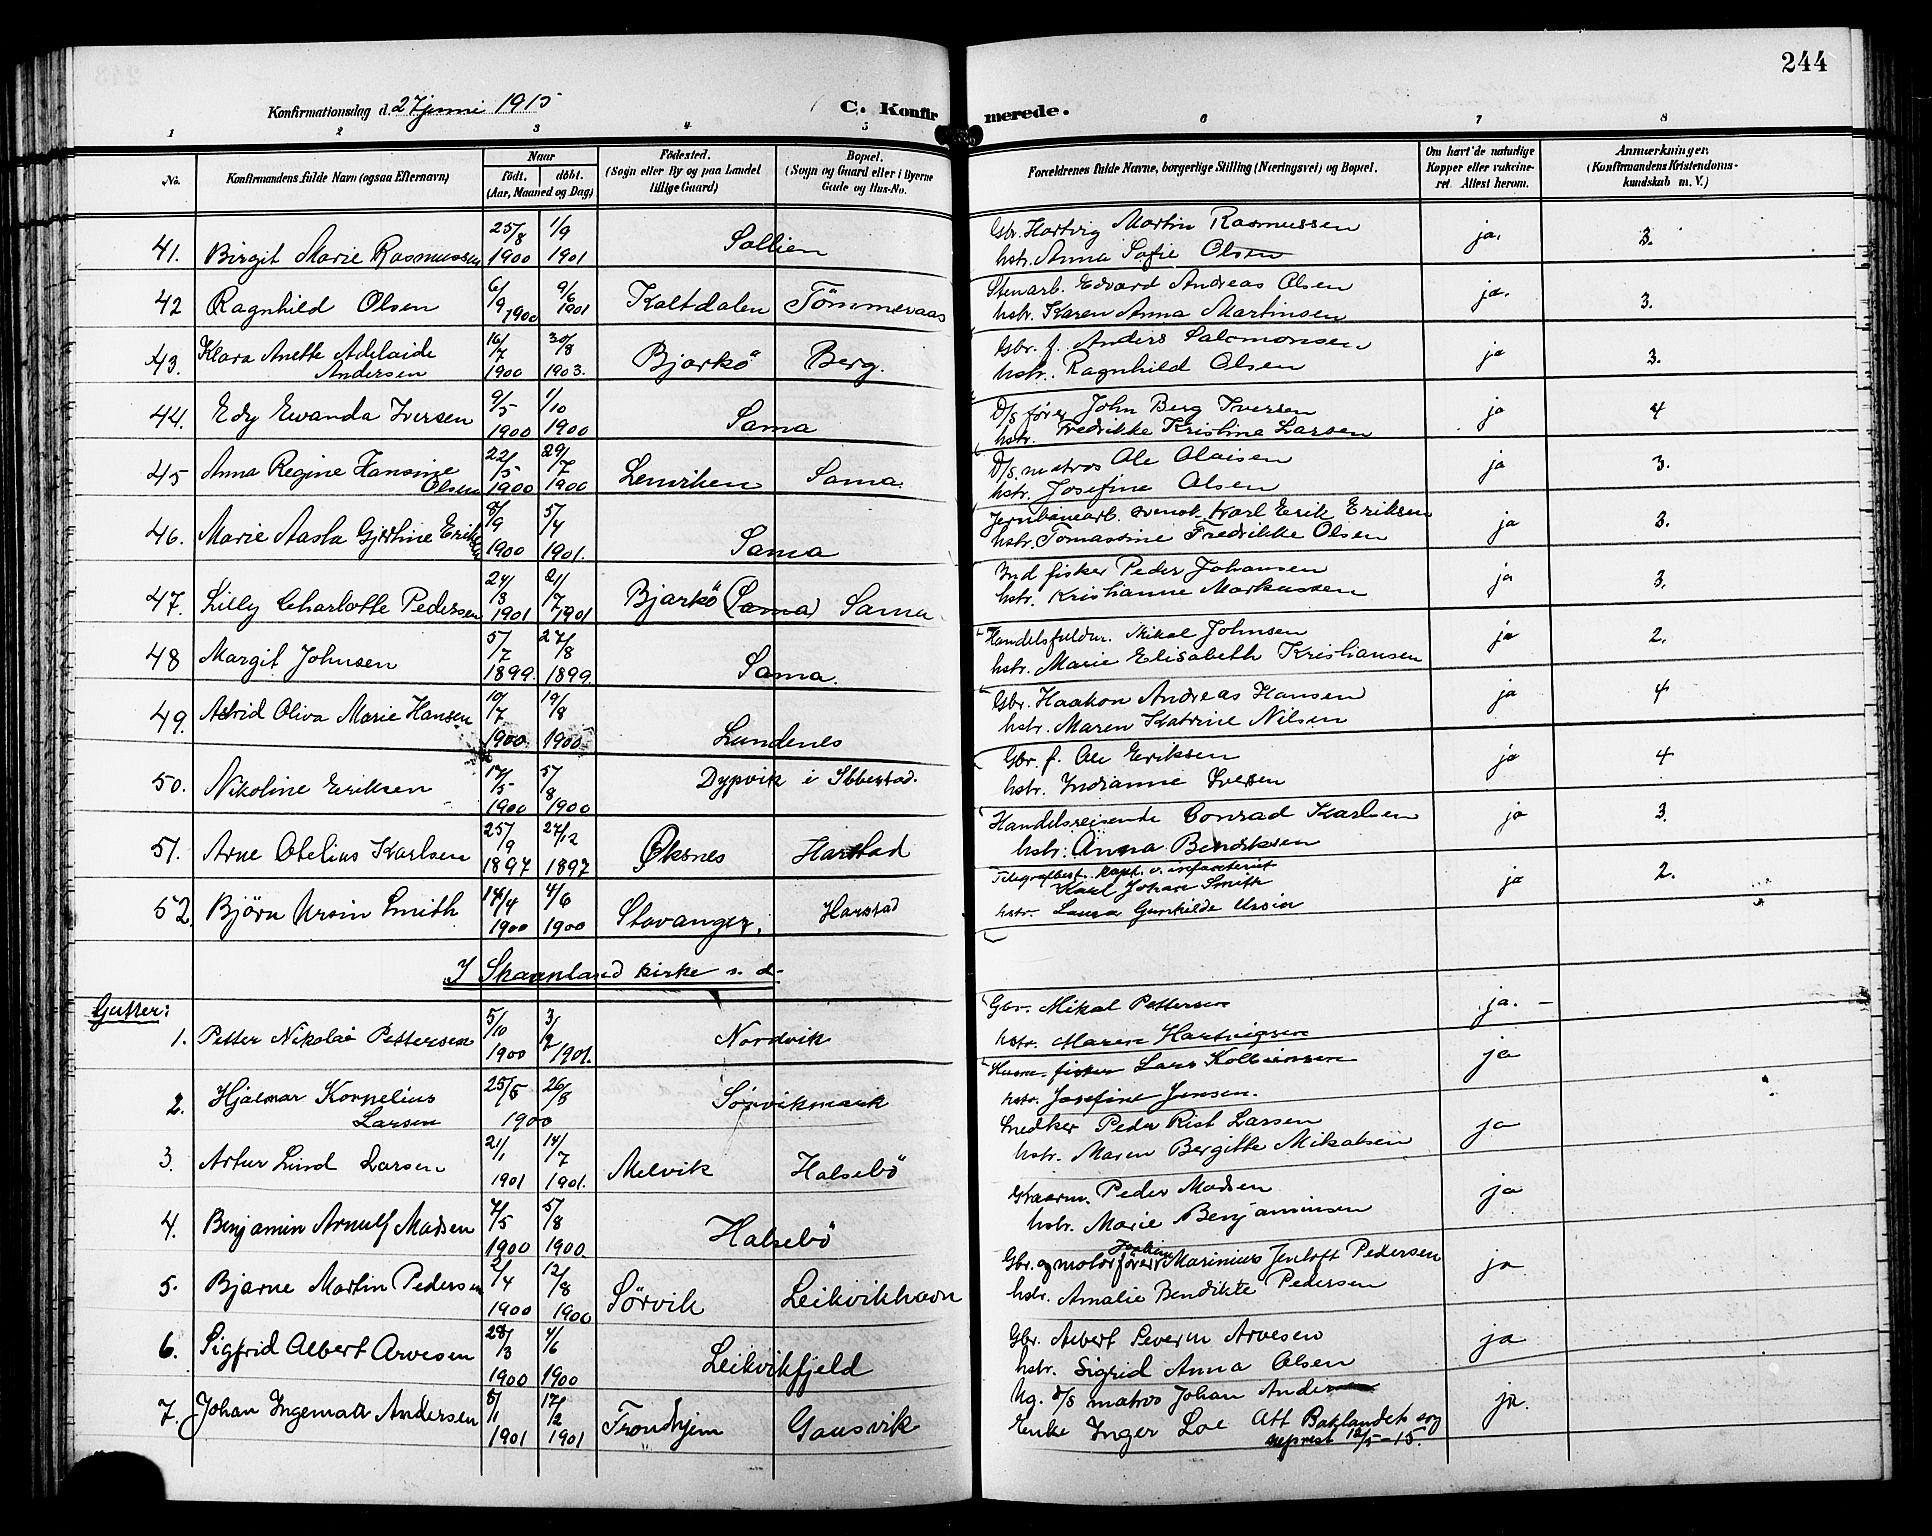 244
Konfirmationsdag d. 27 juni 1915
C. Konfirmerede.
1 2 3 4 5 6 7 8
No.
Konfirmandens fulde Navn (ogsaa Efternavn)
Naar
født. døbt.
(Aar, Maaned og Dag)
Fødested.
(Sogn eller By og paa Landet
tillige Gaard)
Bopæl.
(Sogn og Gaard eller i Byerne
Gade og Hus-No.
Forældrenes fulde Navne, borgerlige Stilling (Næringsvei) og Bopæl.
Om havt de naturlige
Kopper eller vakcine-
ret. Attest herom.
Anmærkninger.
(Konfirmandens Kristendoms-
kundskab m. V.)
41. Birgit Marie Rasmussen 25/8 1900 1/9 1901 Sollien Gbr. Hartvig Martin Rasmussen ja. 3.
hstr. Anna Sofie Olsen
42 Ragnhild Olsen 6/9 1900 9/6 1901 Kaltdalen Tömmeraas Stenarb. Edvard Andreas Olsen ja. 3.
hstr. Karen Anna Martinsen
43. Klara Anette Adelaide 16/7 1900 30/8 1903. Bjarkö Berg. Gbr. f. Anders Salomonsen ja 3.
Andersen hstr. Ragnhild Olsen
44. Edy Ewanda Iversen 9/5 1900 1/10 1900 Sama D/s fører John Berg Iversen ja 4
hstr. Fredrikke Kristine Larsen
45 Anna Regine Hansine 22/5 1900 29/7 1900 Lenviken Sama. D/s matros Ole Olaisen ja 3.
Olsen hstr. Josefine Olsen
46. Marie Aasta Gjertine Eriksen 8/9 1900 5/4 1901. Sama Jernbanearb. svensk Karl Erik Eriksen ja 3.
hstr. Tomassine Fredrikke Olsen
47. Lilly Charlotte Pedersen 24/3 1901 21/7 1901 Bjarkö (Sama) Sama Ind fisker Peder Johansen ja 3.
hstr. Kristianne Markussen
48 Margit Johnsen 5/7 1899. 27/8 1899. Sama. Handelsfuldm. Mikal Johnsen ja 2.
hstr. Marie Elisabeth Kristiansen
49. Astrid Oliva Marie Hansen 10/7 1900 19/8 1900 Lundenes Gbr. Haakon Andreas Hansen ja 4
hstr. Maren Katrine Nilsen
50. Nikoline Eriksen 17/5 1900 5/8 1900 Dypvik i Ibbestad. Gbr. f. Ole Eriksen ja 4
hstr. Indianne Iversen
51. Arne Otelius Karlsen 25/9 1897 27/12 1897 Øksnes Harstad Handelsreisende Conrad Karlsen ja 3.
hstr: Anna Bendiksen
52. Bjørn Ursin Smith 14/4 1900 4/6 1900 Stavanger. Harstad Telegrafbest. kapt. v. infanteriet ja 2.
Karl Johan Smith
hstr. Laura Gunhilde Ursin
I Skaanland kirke s. d.
Gutter:
1. Petter Nikolai Pettersen 5/10 1900 3/2 1901. Nordvik Gbr. Mikal Pettersen ja. –
hstr. Maren Hartvigsen
2. Hjalmar Kornelius 25/5 26/8 1900 Sørvikmark Husm. fisker Lars Kolbensen ja
Larsen hstr. Josefine Jensen.
3. Artur Lind Larsen 21/1 1901 14/7 1901. Melvik Halsebö Snedker Peder Rist Larsen ja
hstr. Maren Bergitte Mikalsen
4. Benjamin Arnulf Madsen 7/5 1900 5/8 1900. Halsebö Graarm. Peder Madsen ja
hstr. Marie Benjaminsen
5. Bjarne Martin Pedersen 2/4 1900 12/8 1900 Sörvik Leikvikhavn Gbr. og motorfører Marinius Jentoft Pedersen ja
hstr. Amalie Bendikte Pedersen
6. Sigfrid Albert Arvesen 28/3 1900 4/6 1900 Leikvikfjeld Gbr. Albert Severin Arvesen ja
hstr. Sigrid Anna Olsen
7. Johan Ingemar Andersen 8/1 1901 17/2 1901 Trondhjem Gausvik Ug. d/s matros Johan Andersen ja.
Enke Inger Loe Att Baklandets sog
neprest 12/5 – 15.